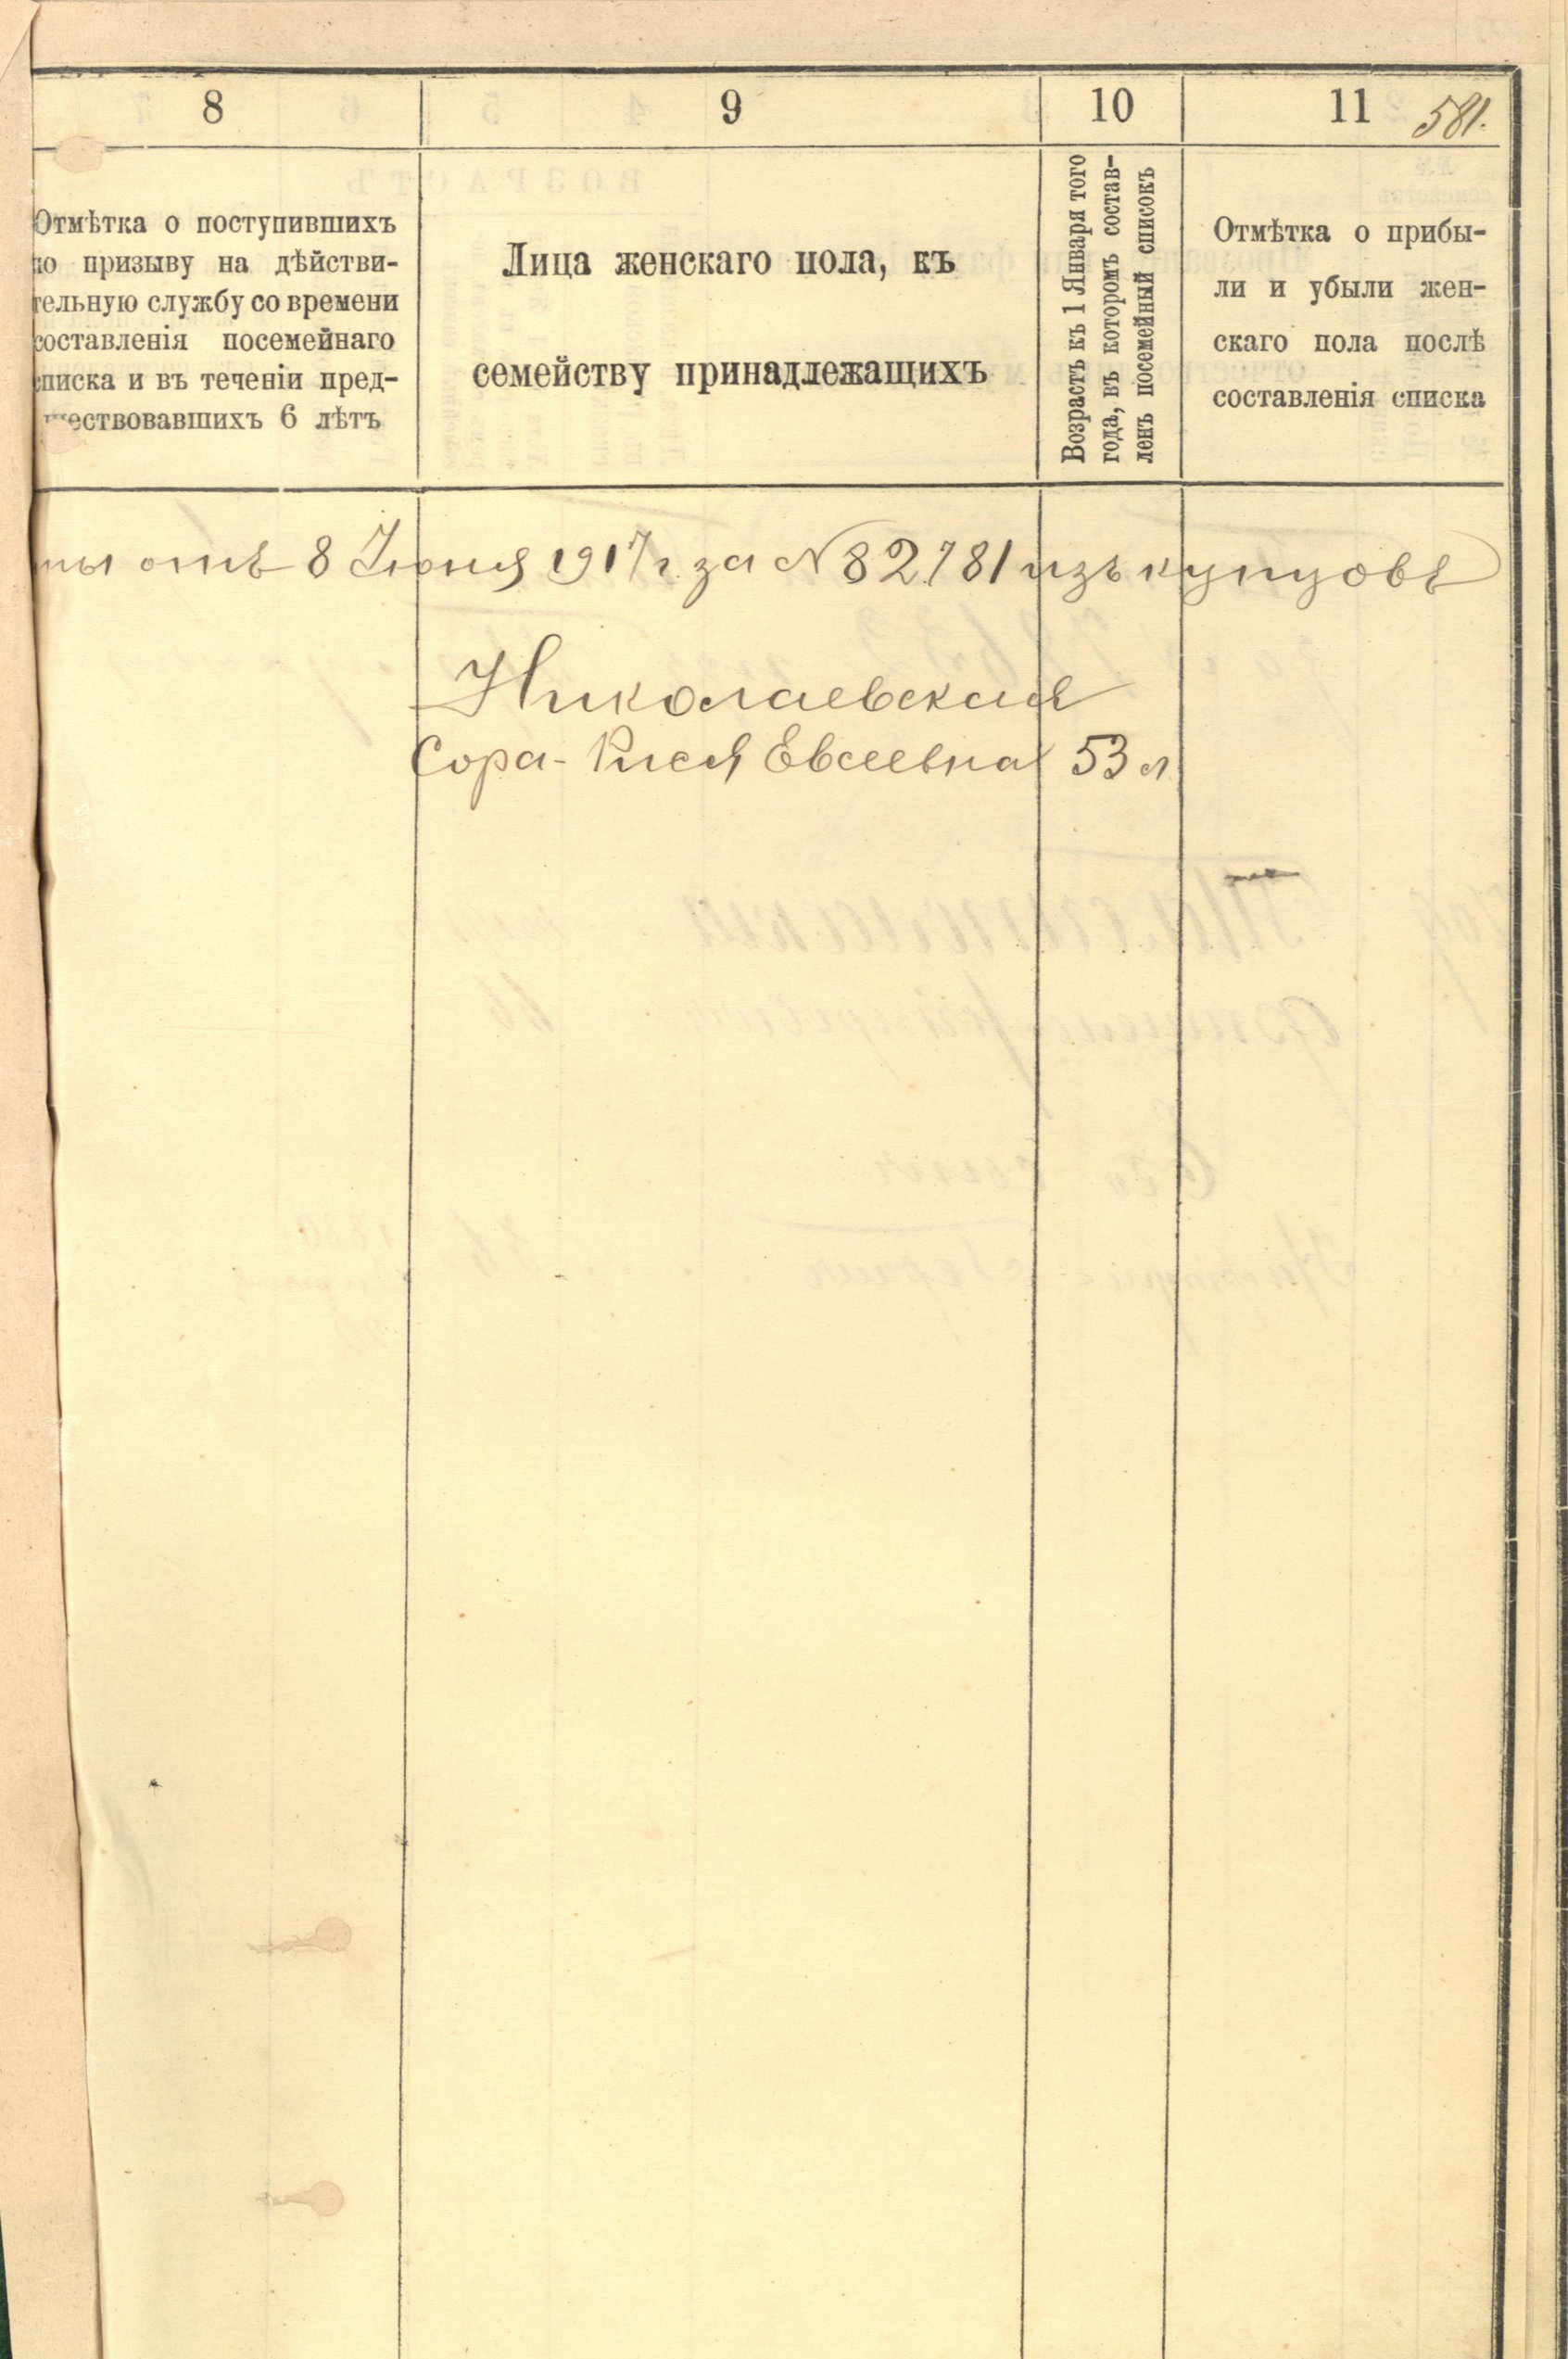 8 9 10 11 581.
Отмѣтка о поступившихъ
по призыву на дѣйстви-
тельную службу со времени
составленія посемейнаго
списка и въ теченіи пред-
шествовавшихъ 6 лѣтъ
Лица женскаго пола, къ
семейству принадлежащихъ
Возрастъ къ 1 Января того
года, въ которомъ состав-
ленъ посемейный списокъ
Отмѣтка о прибы-
ли и убыли жен-
скаго пола послѣ
составленія списка
отъ 8 Іюня 1917 г. за № 82781 изъ купцовъ
Николаевская
Сора-Рися Евсеевна 53 л